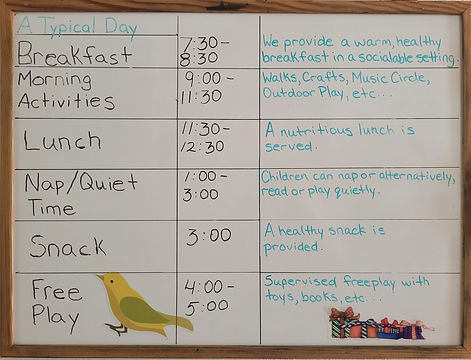 A Typical Day
Breakfast
7:30-
8:30
We provide a warm, healthy
breakfast in a socialable setting.
Morning
Activities
9:00-
11:30
Walks, Crafts, Music Circle,
Outdoor Play, etc...
Lunch
11:30-
12:30
A nutritious lunch is
served.
Nap/Quiet
Time
1:00-
3:00
Children can nap or alternatively,
read or play quietly.
Snack
3:00
A healthy snack is
provided.
Free
Play
4:00-
5:00
Supervised freeplay with
toys, books, etc...